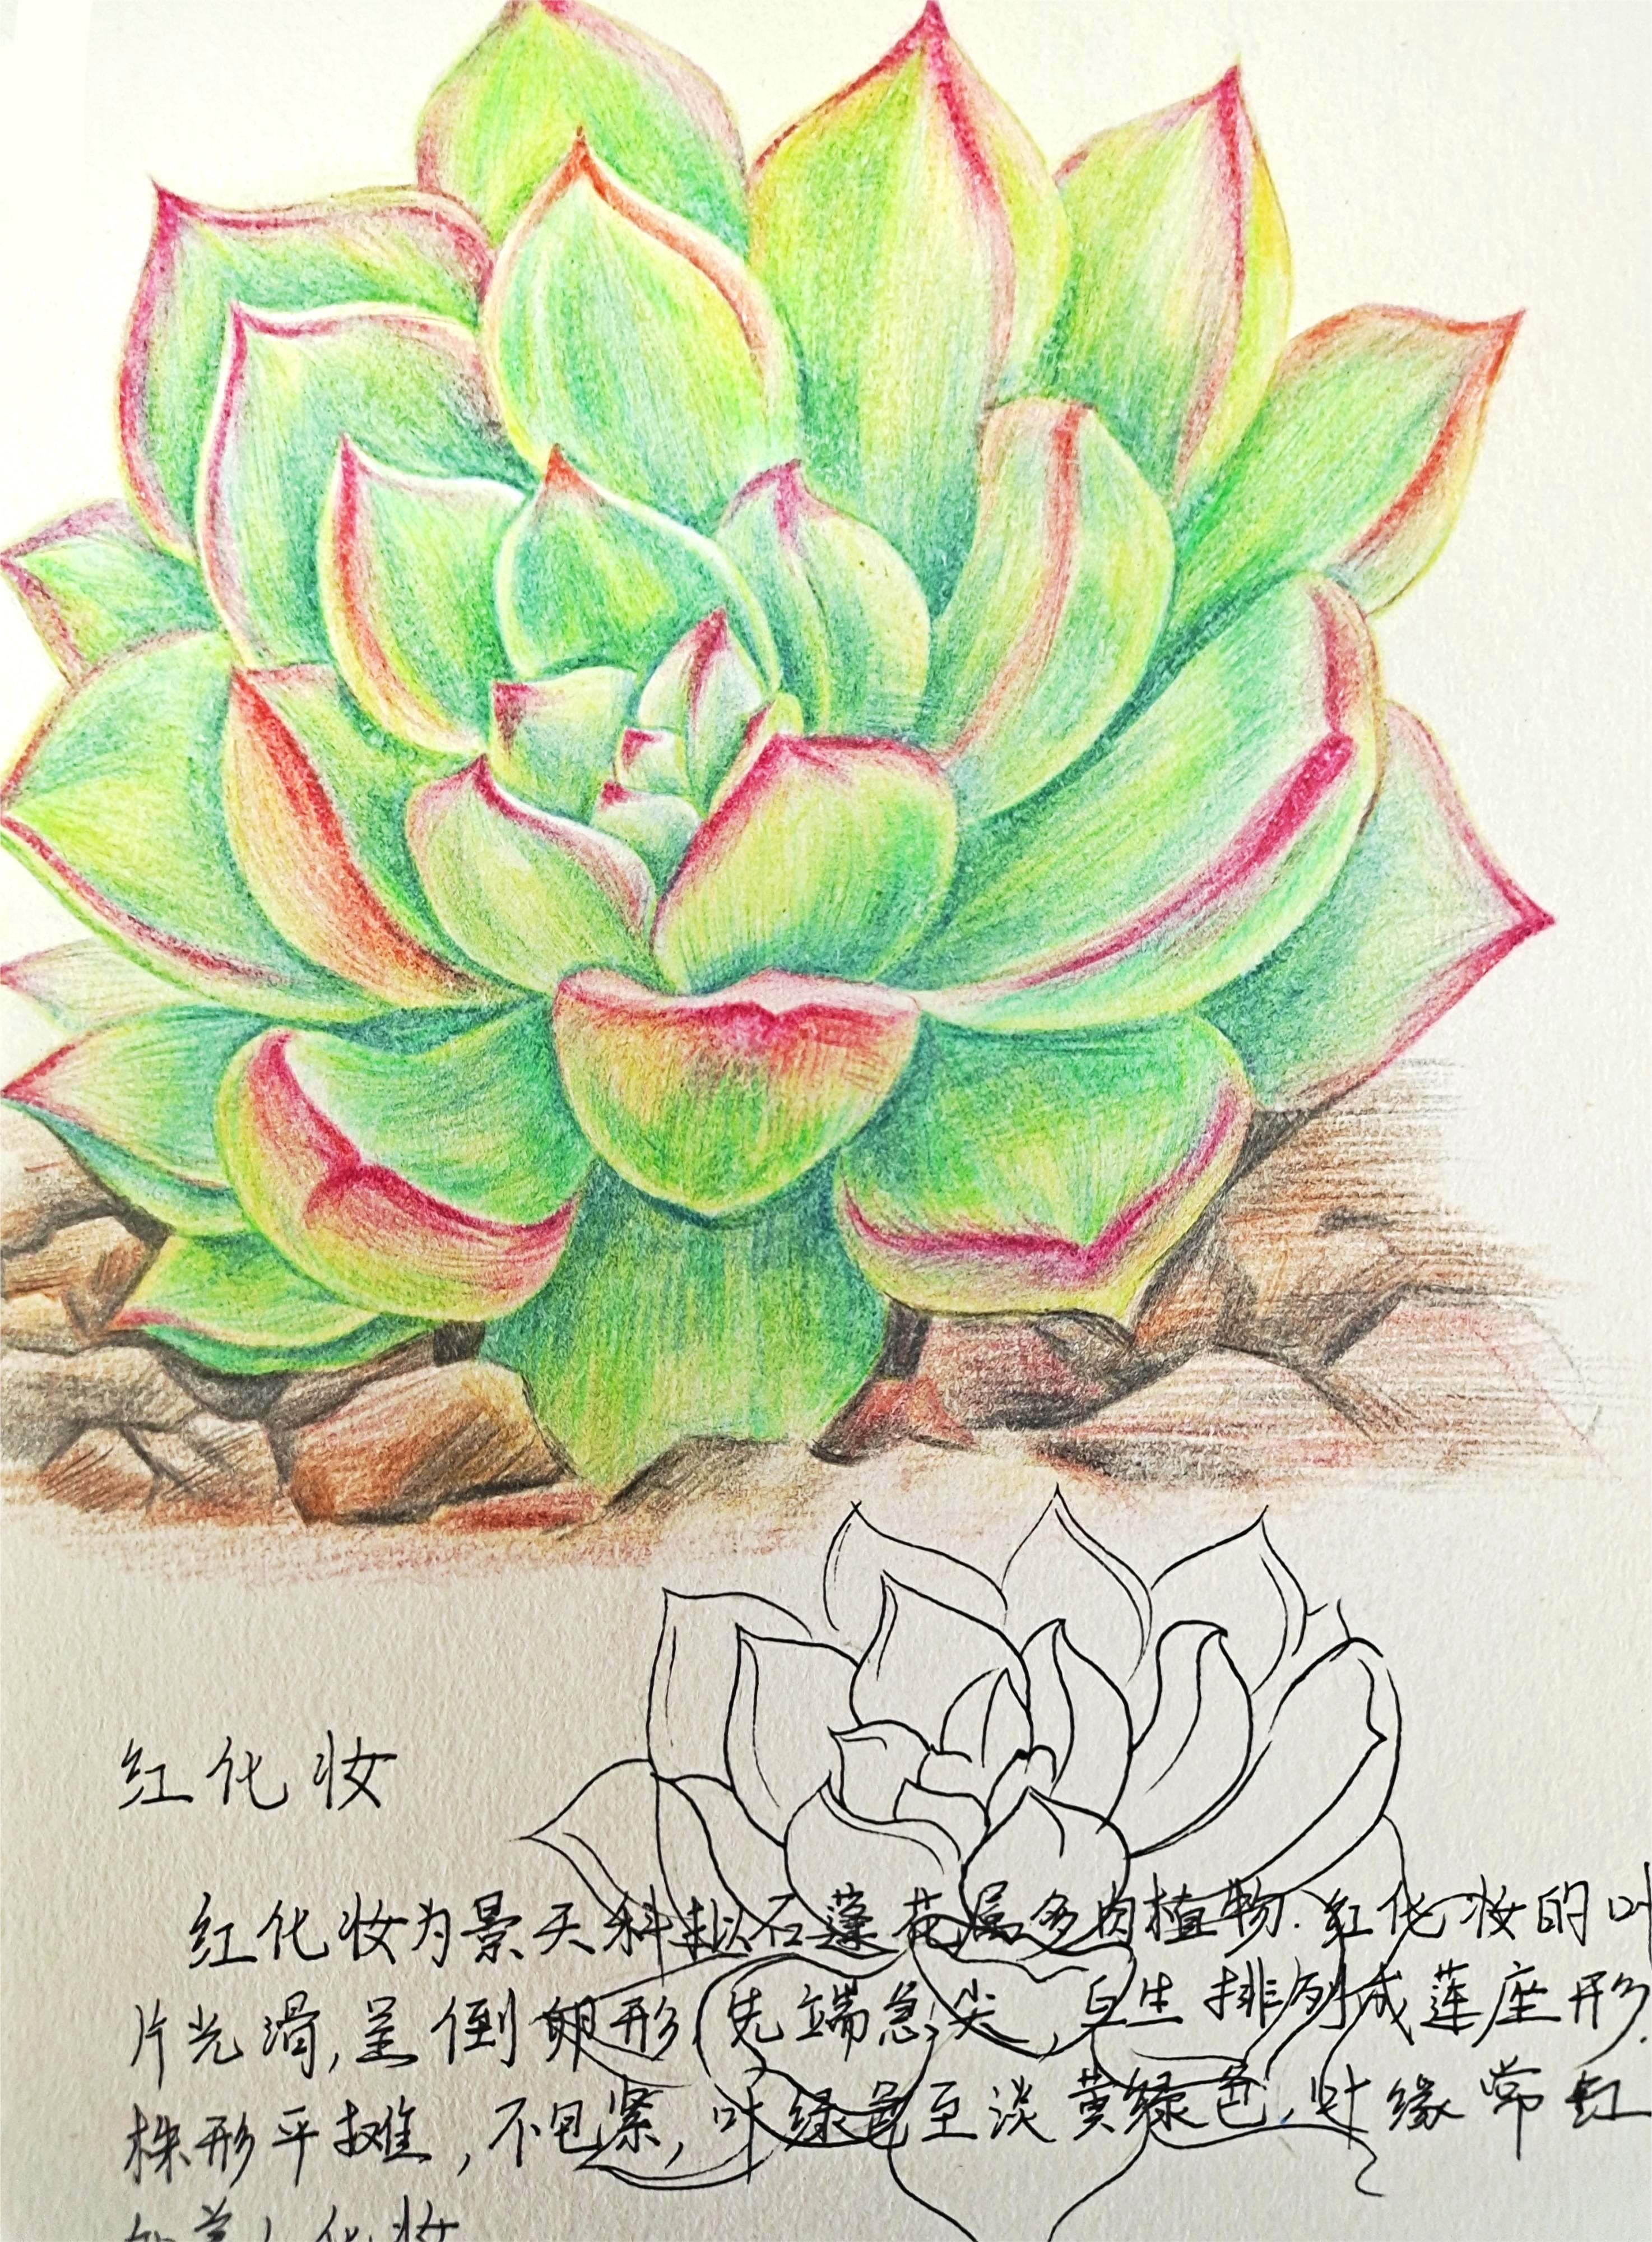 红化妆
红化妆为景天科拟石莲花属多肉植物.红化妆的叶
片光滑,呈倒卵形,先端急尖,互生排列成莲座形.
株形平摊,不包紧,叶绿色至淡黄绿色,叶缘常红
化妆